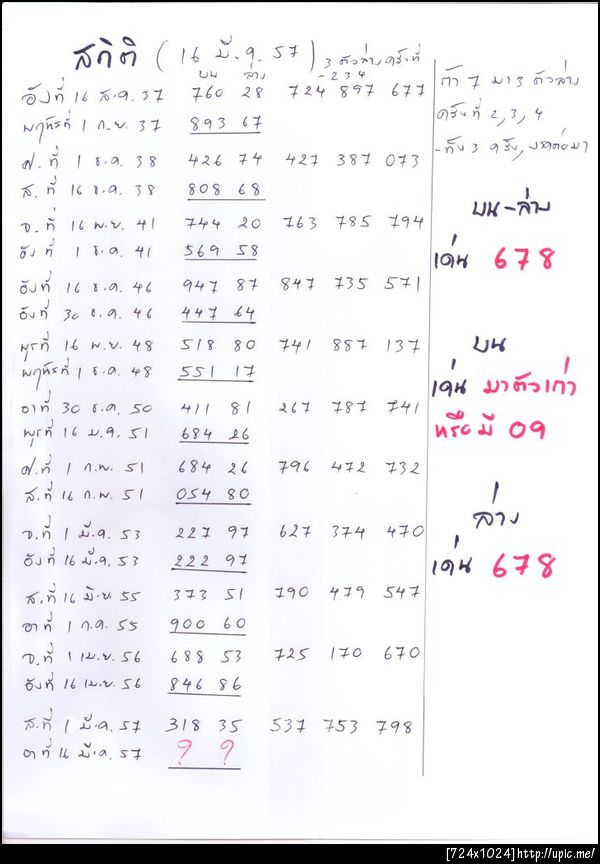 สถิติ (16 มี.ค. 57) 3 ตัวล่าง ครั้งที่
บน ล่าง -2 3 4
อังที่ 16 ส.ค. 37 760 28 724 897 677
พฤหัสที่ 1 ก.ย. 37 893 67
ศ. ที่ 1 ธ.ค. 38 426 74 427 387 073
ส. ที่ 16 ธ.ค. 38 808 68
จ. ที่ 16 พ.ย. 41 744 20 763 785 794
อัง ที่ 1 ธ.ค. 41 569 58
อังที่ 16 ธ.ค. 46 947 87 847 735 571
อังที่ 30 ธ.ค. 46 447 64
พุธที่ 16 พ.ย. 48 518 80 741 887 137
พฤหัสที่ 1 ธ.ค. 48 551 17
อาที่ 30 ธ.ค. 50 411 81 267 787 741
พุธที่ 16 ม.ค. 51 684 26
ศ. ที่ 1 ก.พ. 51 684 26 796 472 732
ส. ที่ 16 ก.พ. 51 054 80
จ. ที่ 1 มี.ค. 53 227 97 627 374 470
อังที่ 16 มี.ค. 53 222 97
ส. ที่ 16 มิ.ย. 55 373 51 790 479 547
อาที่ 1 ก.ค. 55 900 60
จ. ที่ 1 เม.ย. 56 688 53 725 170 670
อังที่ 16 เม.ย. 56 846 86
ส. ที่ 1 มี.ค. 57 318 35 537 753 798
อาที่ 16 มี.ค. 57 ? ?
ถ้า 7 มา 3 ตัวล่าง
ครั้งที่ 2, 3, 4
-ทั้ง 3 ครั้ง, งวดต่อมา
บน-ล่าง
เด่น 678
บน
เด่น มาตัวเก่า
หรือมี 09
ล่าง
เด่น 678
[724x1024]http://upic.me/